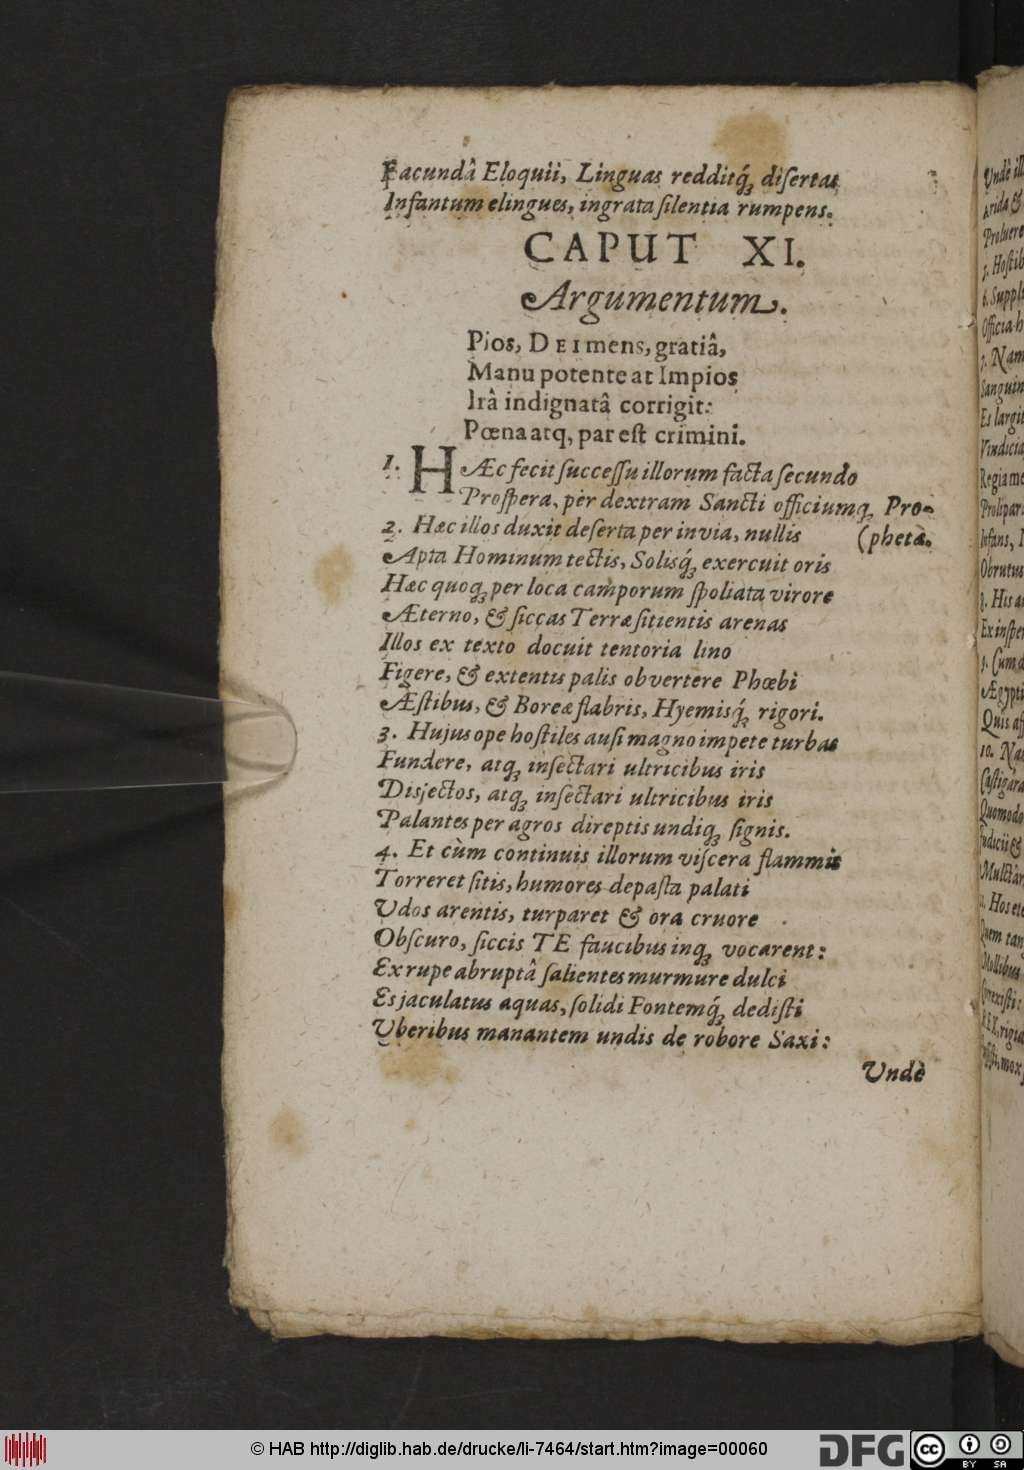 Facundâ Eloquii, Linguas redditq́ꝫ disertas
Infantum elingues, ingrata silentia rumpens.
CAPUT XI.
Argumentum.
Pios, DEI mens, gratiâ,
Manu potente at Impios
Irâ indignatâ corrigit:
Pœna atq, par est crimini.
1. HÆc fecit successu illorum facta secundo
Prospera, pèr dextram Sancti officiumqꝫ Pro-
2. Hæc illos duxit deserta per invia, nullis (phetæ.
Apta Hominum tectis, Solisq́ꝫ exercuit oris
Hæc quoqꝫ per loca camporum spoliata virore
Æterno, & siccas Terræ sitientis arenas
Illos ex texto docuit tentoria lino
Figere, & extentis palis obvertere Phœbi
Æstibus, & Boreæ flabris, Hyemisq́ꝫ rigori.
3. Hujus ope hostiles ausi magno impete turbas
Fundere, atqꝫ insectari ultricibus iris
Disjectos, atqꝫ insectari ultricibus iris
Palantes per agros direptis undiqꝫ signis.
4. Et cùm continuis illorum viscera flammis
Torreret sitis, humores depasta palati
Udos arentis, turparet & ora cruore
Obscuro, siccis TE faucibus inqꝫ vocarent:
Ex rupe abruptâ salientes murmure dulci
Es jaculatus aquas, solidi Fontemq́ꝫ dedisti
Uberibus manantem undis de robore Saxi:
Undè
Undè
Arida &
Proluere
5. Hostib
6. Suppl
Officia
7. Nam
Sanguin
Es largit
Vindicia
Regia me
Prolipar
Infans,
Obrutus
8. His
Ex insper
9. Cum
Ægypti
Quis aff
10. Na
Castigára
Quomodo
Judicii &
Mulctár
11. Hos
Quem tan
Mollibus
Correxisti:
REX,
mox
© HAB http://diglib.hab.de/drucke/li-7464/start.htm?image=00060
DFG
cc
BY SA